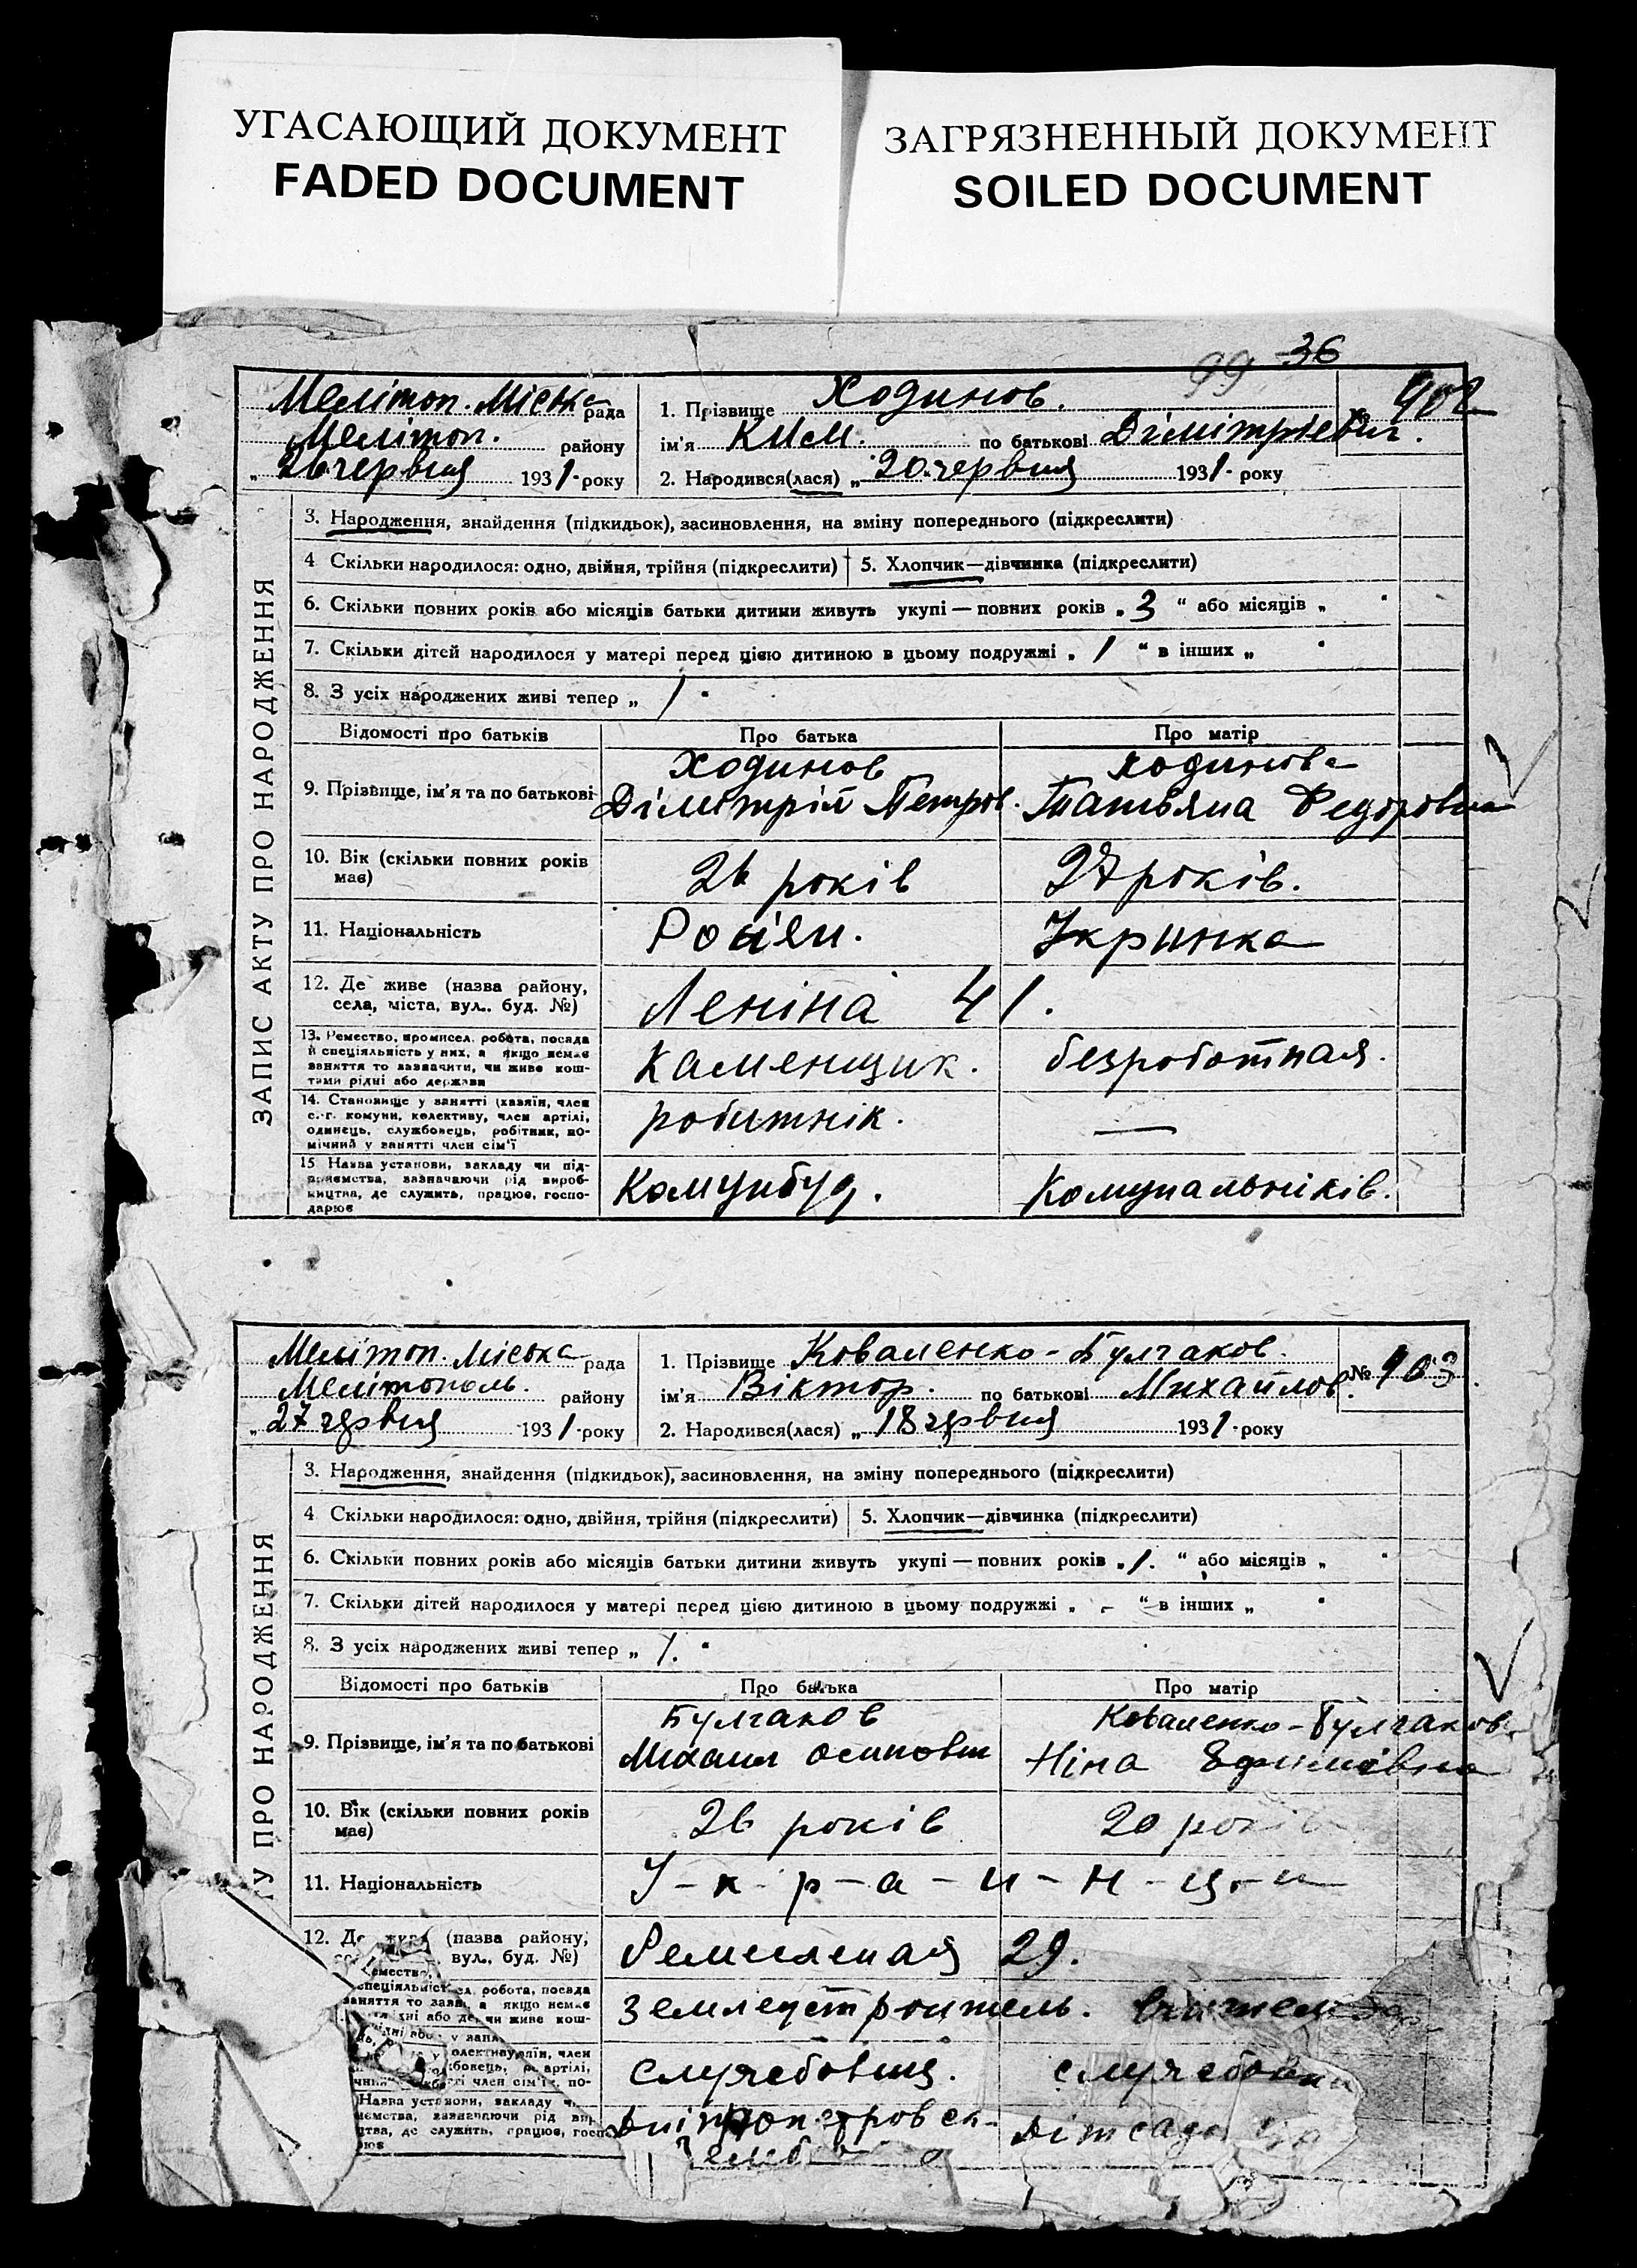 УГАСАЮЩИЙ ДОКУМЕНТ
FADED DOCUMENT
ЗАГРЯЗНЕННЫЙ ДОКУМЕНТ
SOILED DOCUMENT
99 36
Мелітоп. Міська рада
Мелітоп. району
„ 26 червня 1931 року
1. Прізвище Ходинов.
ім'я Ким. по батькові Дімітріевич.
2. Народився(лася) „ 20 червня 1931 року
№ 902
ЗАПИС АКТУ ПРО НАРОДЖЕННЯ
3. Народження, знайдення (підкидьок), засиновлення, на зміну попереднього (підкреслити)
4 Скільки народилося: одно, двійня, трійня (підкреслити) 5. Хлопчик—дівчинка (підкреслити)
6. Скільки повних років або місяців батьки дитини живуть укупі — повних років „ 3 “ або місяців „ “
7. Скільки дітей народилося у матері перед цією дитиною в цьому подружжі „ 1 “ в інших „ “
8. З усіх народжених живі тепер „ 1 “
Відомості про батьків Про батька Про матір
9. Прізвище, ім'я та по батькові
Ходинов
Дімітрій Петров.
Ходинова
Татьяна Федоровна
10. Вік (скільки повних років має) 26 років 27 років.
11. Національність Росіян. Укринка
12. Де живе (назва району, села, міста, вул., буд. №) Леніна 41.
13. Ремество, промисел, робота, посада й спеціяльність у них, а якщо немає заняття то зазначити, чи живе коштами рідні або держави
Каменщик. безроботная.
14. Становище у занятті (хазяїн, член с.-г. комуни, колективу, член артілі, одинець, службовець, робітник, помічний у занятті член сім'ї
робитнік. —
15 Назва установи, закладу чи підприємства, зазначаючи рід виробництва, де служить, працює, господарює
Комунбуд. Комунальників.
Мелітоп. Міська рада
Мелітополь. району
„ 27 червня 1931 року
1. Прізвище Коваленко-Булгаков.
ім'я Віктор. по батькові Михайлов.
2. Народився(лася) „ 18 червня 1931 року
№ 903
У ПРО НАРОДЖЕННЯ
3. Народження, знайдення (підкидьок), засиновлення, на зміну попереднього (підкреслити)
4 Скільки народилося: одно, двійня, трійня (підкреслити) 5. Хлопчик—дівчинка (підкреслити)
6. Скільки повних років або місяців батьки дитини живуть укупі — повних років „ 1. “ або місяців „ “
7. Скільки дітей народилося у матері перед цією дитиною в цьому подружжі „ - “ в інших „ “
8. З усіх народжених живі тепер „ 1. “
Відомості про батьків Про батька Про матір
9. Прізвище, ім'я та по батькові
Булгаков
Михаил Осипович
Коваленко-Булгаков
Ніна Ефимовна
10. Вік (скільки повних років має) 26 років 20 років
11. Національність У-к-р-а-и-н-ц-и
12. Де живе (назва району, вул., буд. №) Ремеслена�я 29.
робота, посада
якщо немає
землеустроитель.
службовець. службовец
Назва установи, закладу
де служить, працює,
Дніпропетровск.
Дітсад